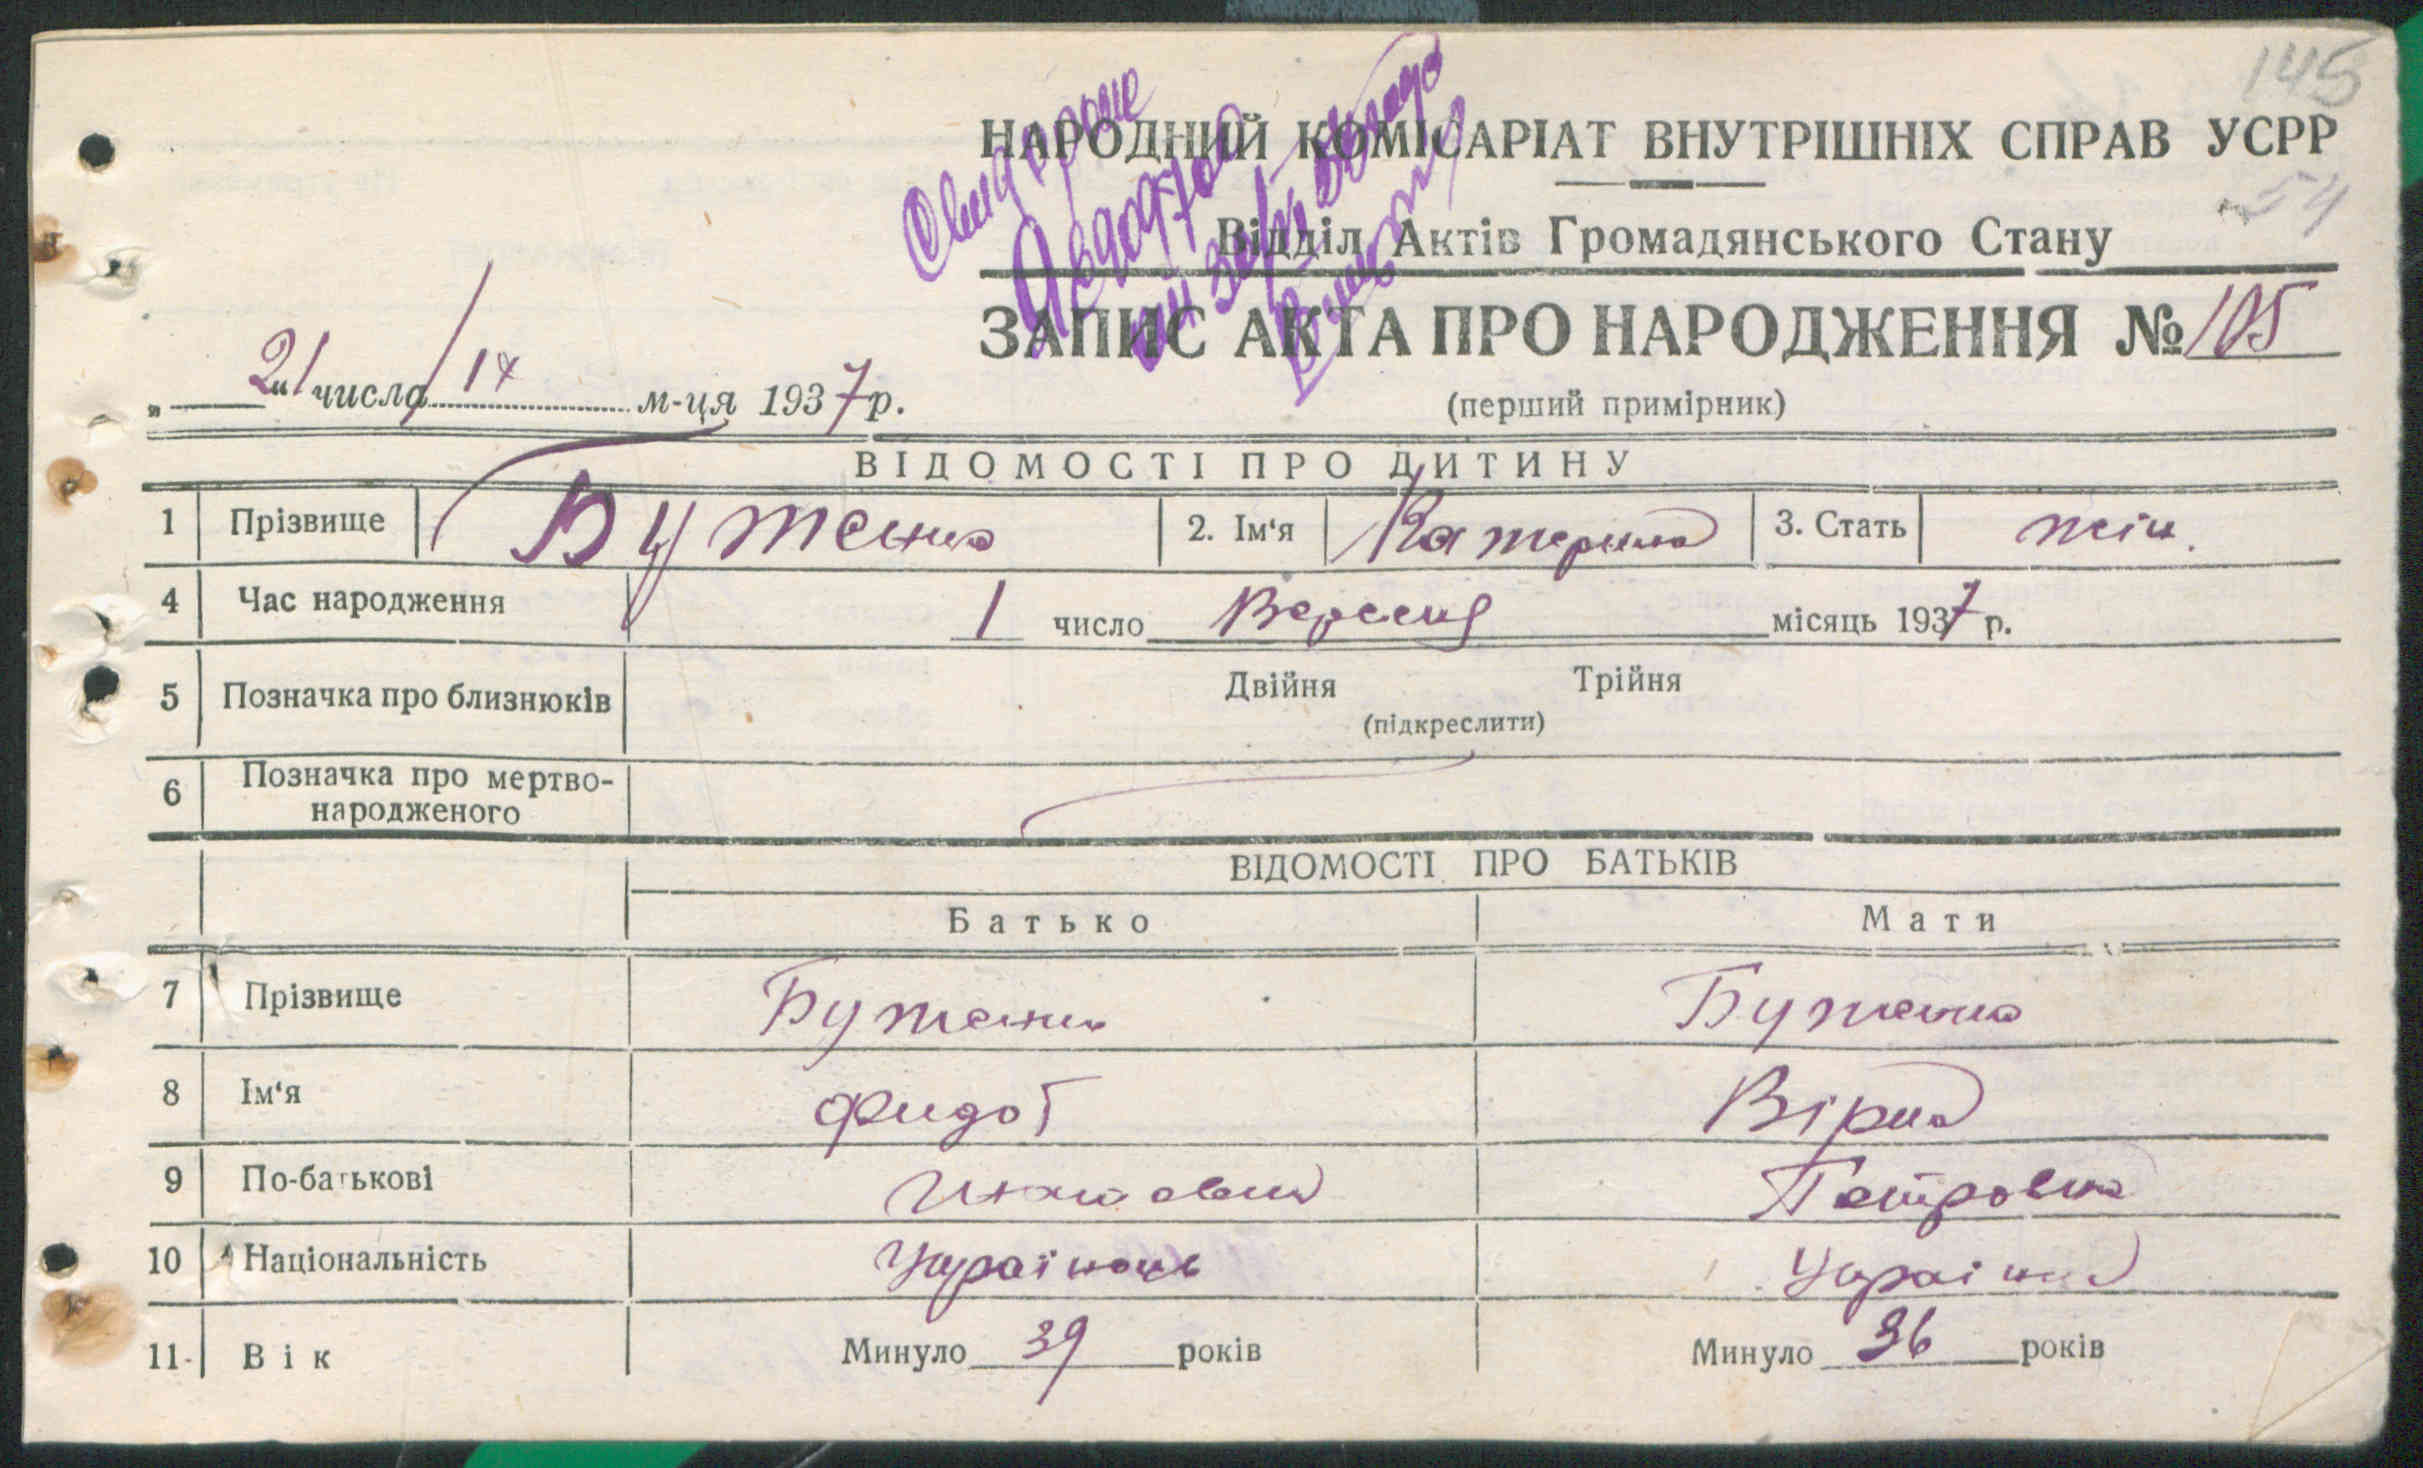 145
НАРОДНИЙ КОМІСАРІАТ ВНУТРІШНІХ СПРАВ УСРР
54
Відділ Актів Громадянського Стану
ЗАПИС АКТА ПРО НАРОДЖЕННЯ № 105
„ 21 “ числа IX м-ця 1937 р.
(перший примірник)
ВІДОМОСТІ ПРО ДИТИНУ
1 Прізвище Бутенко 2. Ім‘я Катерина 3. Стать жін.
4 Час народження 1 число Вересня місяць 1937 р.
5 Позначка про близнюків Двійня Трійня
(підкреслити)
6 Позначка про мертво-
народженого
ВІДОМОСТІ ПРО БАТЬКІВ
Батько Мати
7 Прізвище Бутенко Бутенко
8 Ім‘я Федот Віра
9 По-батькові Петровна
10 Національність Українець Україн
11 Вік Минуло 39 років Минуло 36 років